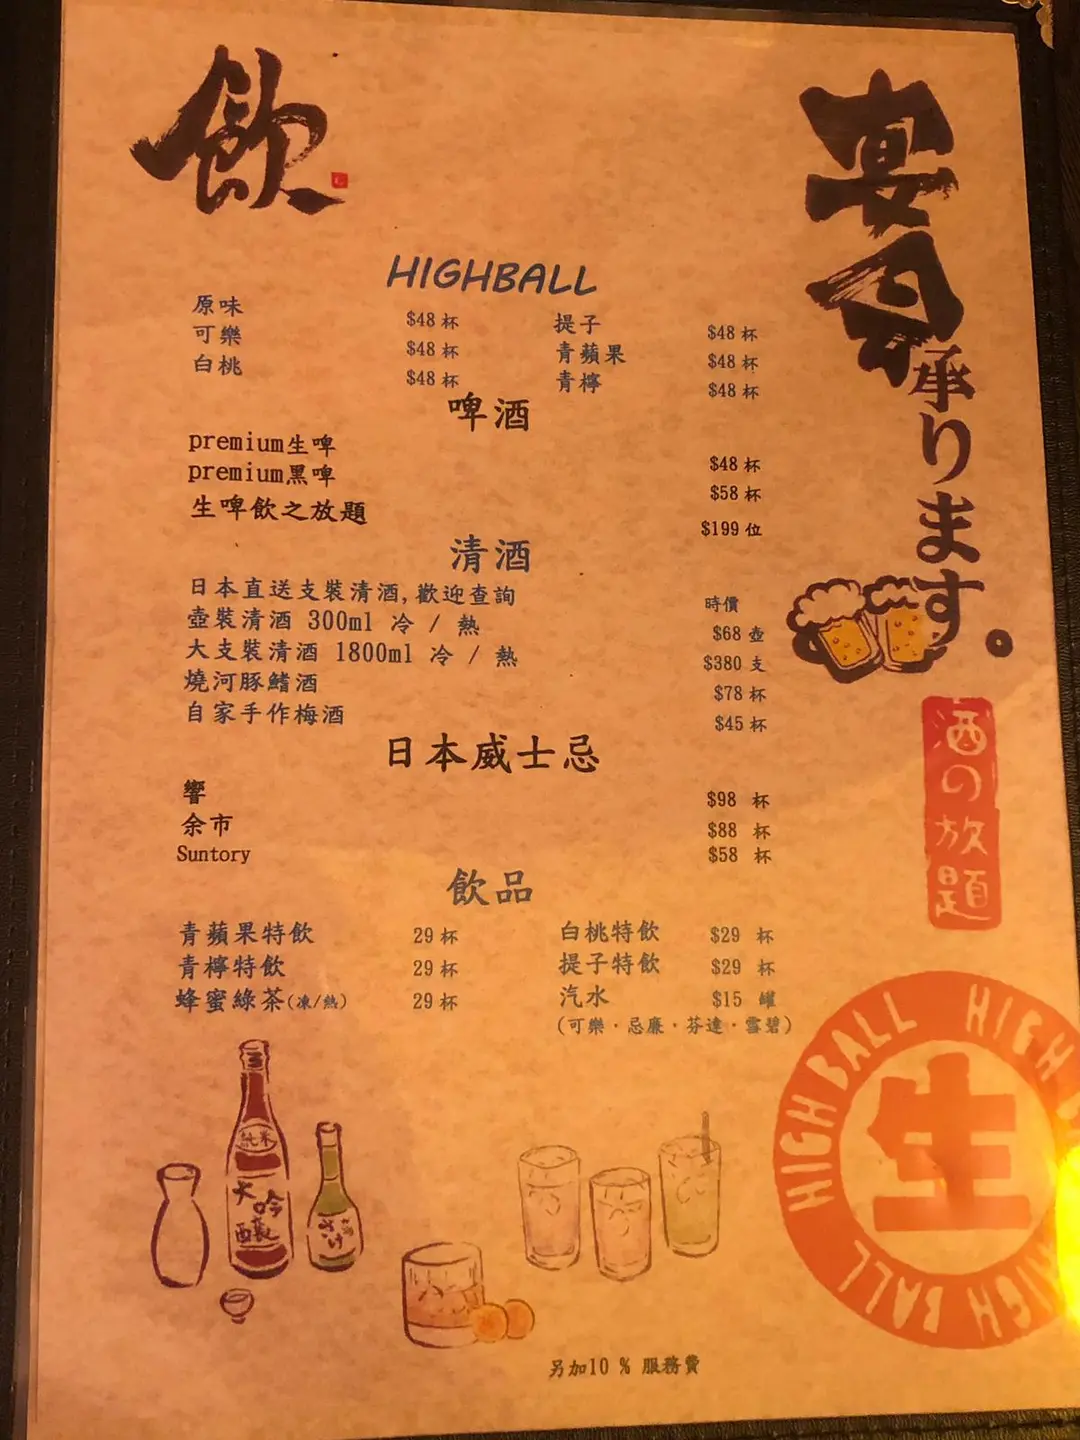 飲
宴会
承ります。
HIGHBALL
原味 $48 杯 提子 $48 杯
可樂 $48 杯 青蘋果 $48 杯
白桃 $48 杯 青檸 $48 杯
啤酒
premium生啤 $48 杯
premium黑啤 $58 杯
生啤飲之放題 $199 位
清酒
日本直送支裝清酒,歡迎查詢 時價
壺裝清酒 300ml 冷 / 熱 $68 壺
大支裝清酒 1800ml 冷 / 熱 $380 支
燒河豚鰭酒 $78 杯
自家手作梅酒 $45 杯
日本威士忌
響 $98 杯
余市 $88 杯
Suntory $58 杯
飲品
青蘋果特飲 29 杯 白桃特飲 $29 杯
青檸特飲 29 杯 提子特飲 $29 杯
蜂蜜綠茶(凍/熱) 29 杯 汽水 $15 罐
(可樂·忌廉·芬達·雪碧)
酒の放題
HIGH BALL HIGH BALL HIGH BALL
生
純米
大吟醸
另加10 % 服務費